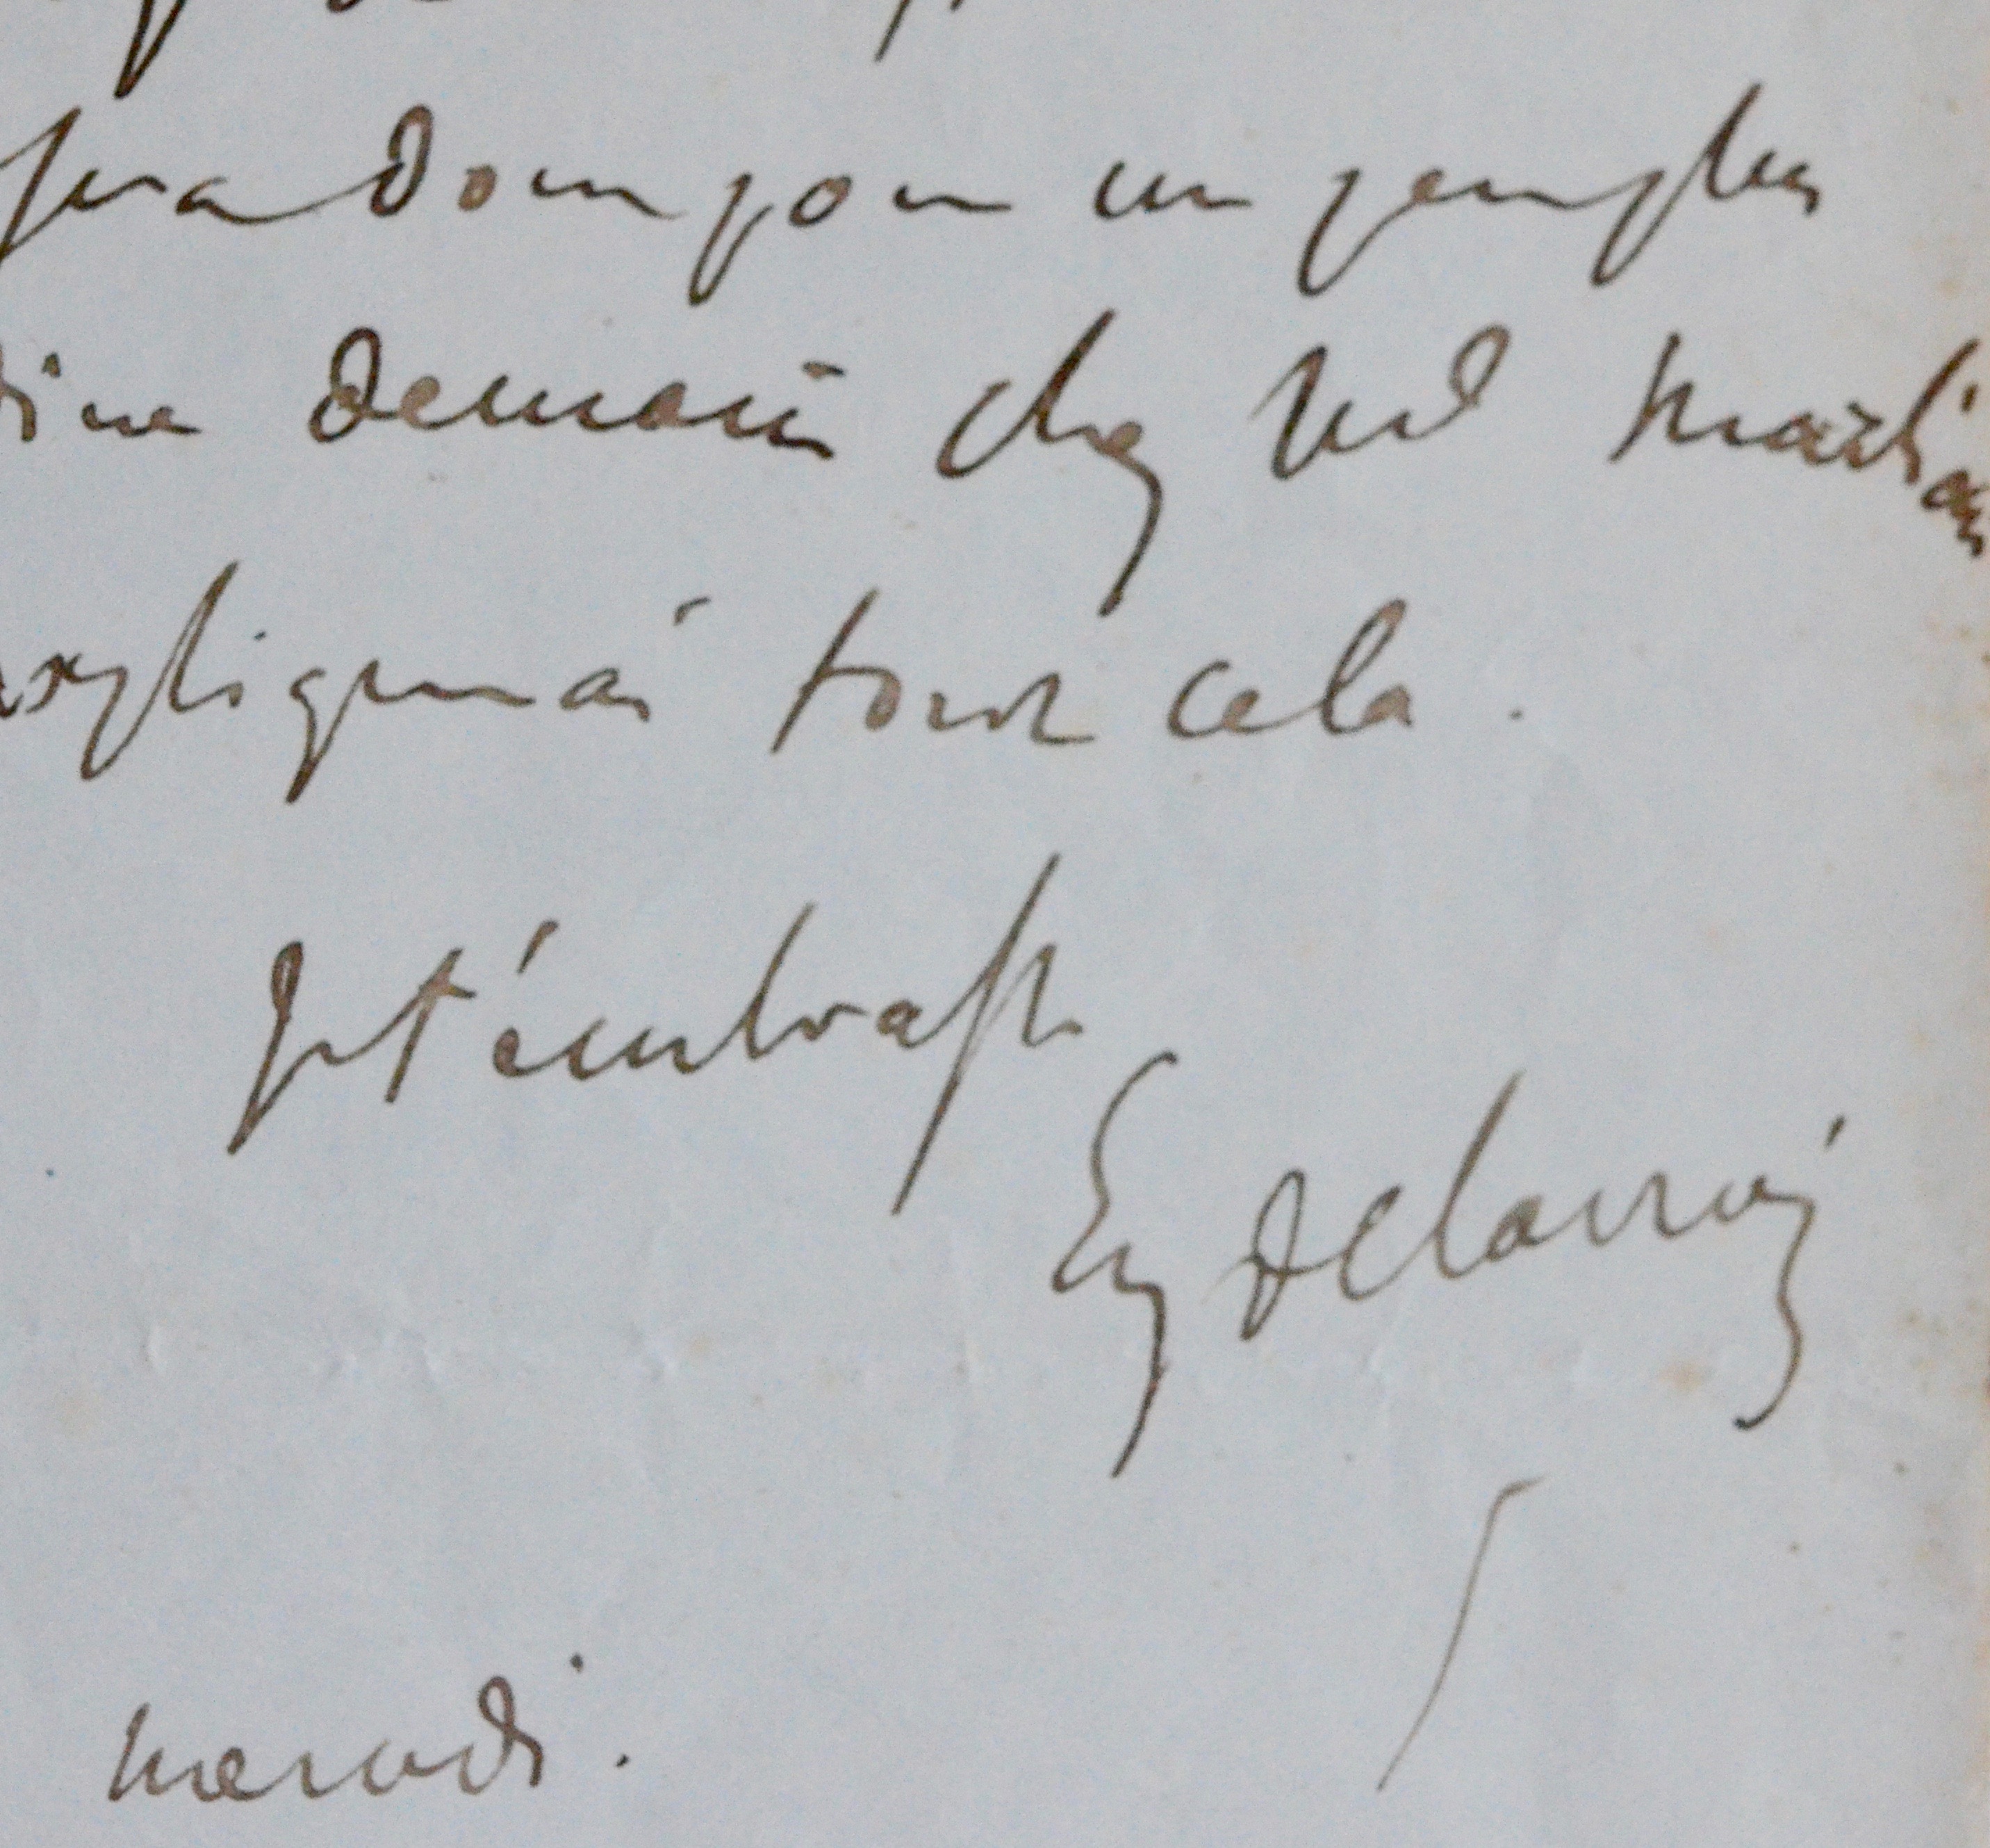 sera donc pour un peu plus
dine demain chez Md
expliquerai tout cela.
Je t'embrasse
Eug Delacroix
mercredi.